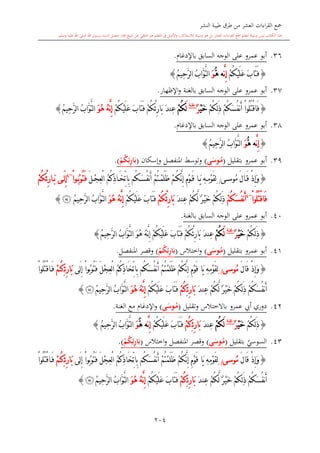 جمع القراءات العشر من طرق طيبة النشر
٣٦. أبو عمرو على الوجه السابق بالإدغام.
﴿ فَتَابَ عَلَيْكُمْ إِنَّه هُّوَ التَّوَّابُ الرَّحِيمُ ﴾
٣٧. أبو عمرو على الوجه السابق بالغنة والإظهار.
﴿ فَاقْتُلُوا أَنْفُسَكُمْ ذَلِكُمْ خَيْرٌ لَكُمْ عِندَ بَارِئِكُمْ فَتَابَ عَلَيْكُمْ إِنَّهُ هُوَ التَّوَّابُ الرَّحِيمُ ﴾
٣٨. أبو عمرو على الوجه السابق بالإدغام.
﴿ إِنَّه هُّوَ التَّوَّابُ الرَّحِيمُ ﴾
٣٩. أبو عمرو بتقليل (مُوسَى) وتوسط المنفصل وإسكان (بَارِئْكُمْ).
﴿ وَإِذْ قَالَ مُوسَى لِقَوْمِهِ يَا قَوْمِ إِنَّكُمْ ظَلَمْتُمْ أَنْفُسَكُمْ بِاتِّخَاذِكُمُ الْعِجْلَ فَتُوبُوا إِلَى بَارِئْكُمْ
فَاقْتُلُوا أَنْفُسَكُمْ ذَلِكُمْ خَيْرٌ لَكُمْ عِندَ بَارِئْكُمْ فَتَابَ عَلَيْكُمْ إِنَّهُ هُوَ التَّوَّابُ الرَّحِيمُ ﴾
٤٠. أبو عمرو على الوجه السابق بالغنة.
﴿ ذَلِكُمْ خَيْرٌ لَكُمْ عِندَ بَارِئْكُمْ فَتَابَ عَلَيْكُمْ إِنَّهُ هُوَ التَّوَّابُ الرَّحِيمُ ﴾
٤١. أبو عمرو بتقليل (مُوسَى) واختلاس (بَارِئِكُمْ) وقصر المنفصل.
﴿ وَإِذْ قَالَ مُوسَى لِقَوْمِهِ يَا قَوْمِ إِنَّكُمْ ظَلَمْتُمْ أَنْفُسَكُمْ بِاتِّخَاذِكُمُ الْعِجْلَ فَتُوبُوا إِلَى بَارِئِكُمْ فَاقْتُلُوا
أَنْفُسَكُمْ ذَلِكُمْ خَيْرٌ لَكُمْ عِندَ بَارِئِكُمْ فَتَابَ عَلَيْكُمْ إِنَّهُ هُوَ التَّوَّابُ الرَّحِيمُ ﴾
٤٢. دوري أبي عمرو بالاختلاس وتقليل (مُوسَى) والإدغام مع الغنة.
﴿ ذَلِكُمْ خَيْرٌ لَكُمْ عِندَ بَارِئِكُمْ فَتَابَ عَلَيْكُمْ إِنَّه هُّوَ التَّوَّابُ الرَّحِيمُ ﴾
٤٣. السوسيّ بتقليل (مُوسَى) وقصر المنفصل واختلاس (بَارِئِكُمْ).
﴿ وَإِذْ قَالَ مُوسَى لِقَوْمِهِ يَا قَوْمِ إِنَّكُمْ ظَلَمْتُمْ أَنْفُسَكُمْ بِاتِّخَاذِكُمُ الْعِجْلَ فَتُوبُوا إِلَى بَارِئِكُمْ فَاقْتُلُوا
أَنْفُسَكُمْ ذَلِكُمْ خَيْرٌ لَكُمْ عِندَ بَارِئِكُمْ فَتَابَ عَلَيْكُمْ إِنَّه هُّوَ التَّوَّابُ الرَّحِيمُ ﴾
٢٠٤